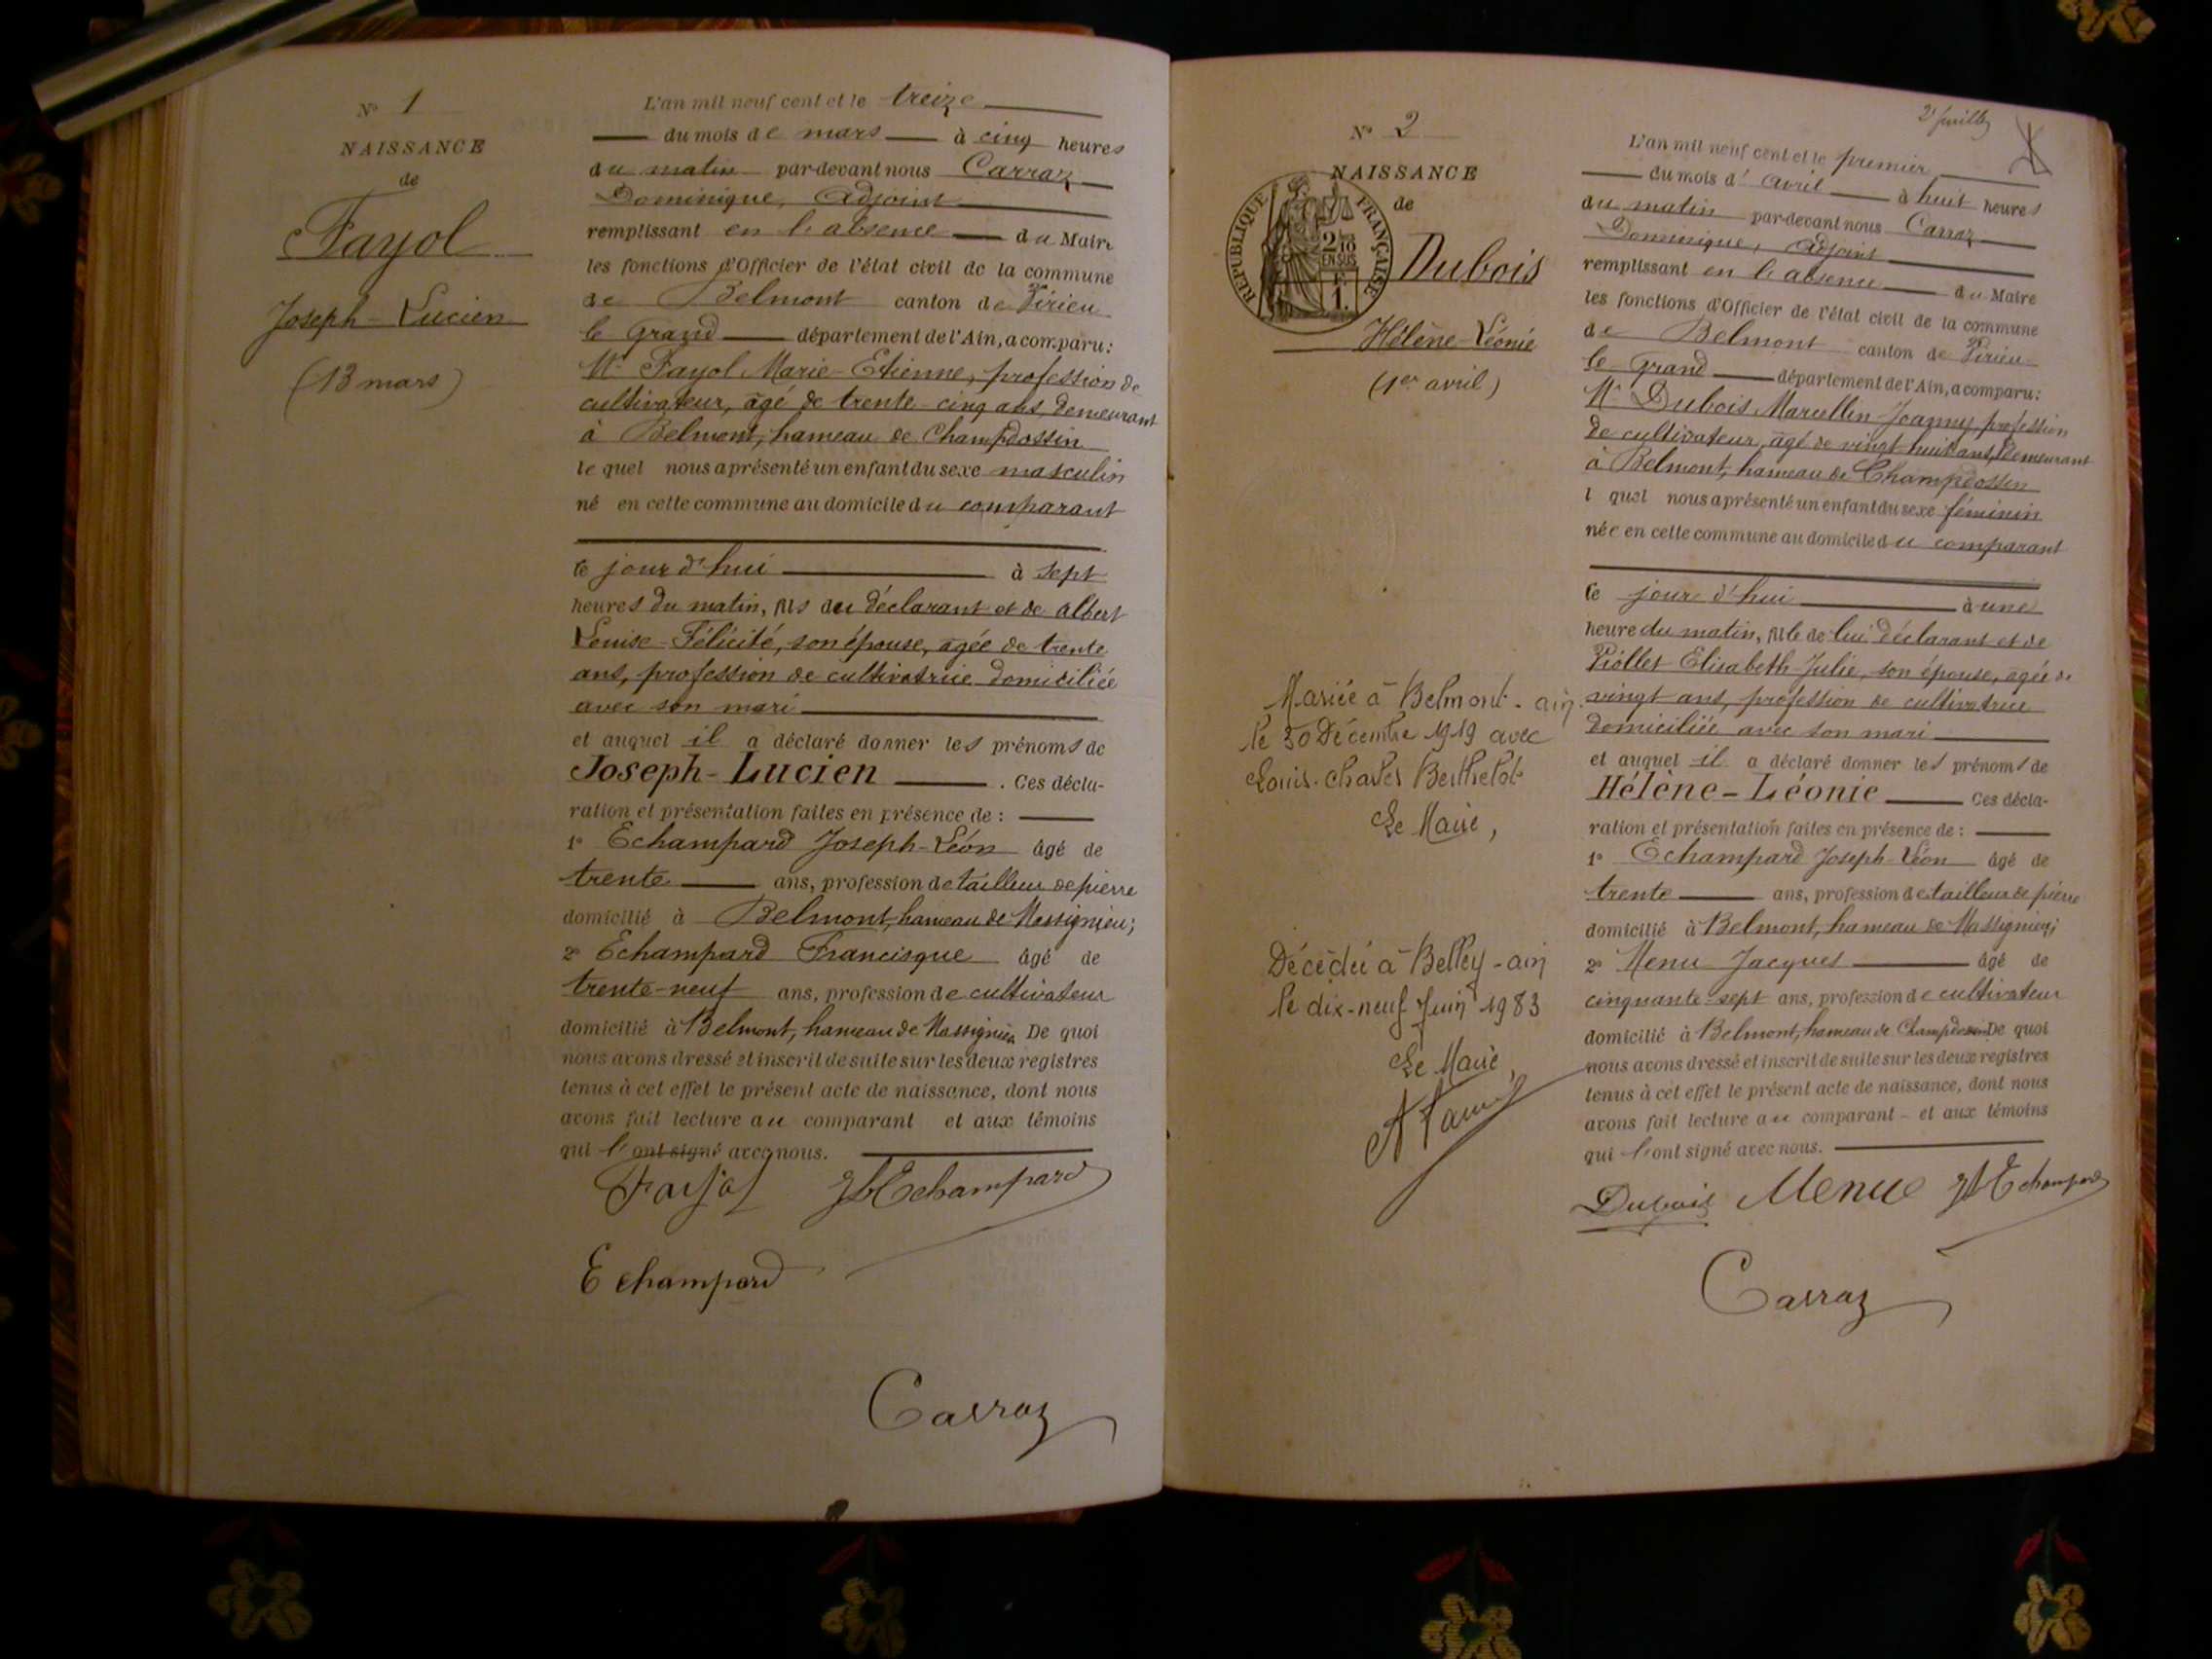 N° 1
NAISSANCE
de
Fayol
Joseph-Lucien
(13 mars)
L'an mil neuf cent et le treize
du mois de mars à cinq heures
du matin par-devant nous Carraz
Dominique, Adjoint
remplissant en l'absence du Maire
les fonctions d'Officier de l'état civil de la commune
de Belmont canton de Virieu
le Grand département de l'Ain, a comparu:
Mr Fayol Marie-Etienne, profession de
cultivateur, âgé de trente-cinq ans, demeurant
à Belmont, hameau de Champdossin
lequel nous a présenté un enfant du sexe masculin
né en cette commune au domicile du comparant
ce jour d'hui à sept
heures du matin, fils du déclarant et de Albert
Louise-Félicité, son épouse, âgée de trente
ans, profession de cultivatrice domiciliée
avec son mari
et auquel il a déclaré donner les prénoms de
Joseph-Lucien . Ces décla-
ration et présentation faites en présence de :
1° Echampard Joseph-Léon âgé de
trente ans, profession de tailleur de pierre
domicilié à Belmont, hameau de Massignieu;
2° Echampard Francisque âgé de
trente-neuf ans, profession de cultivateur
domicilié à Belmont, hameau de Massignieu De quoi
nous avons dressé et inscrit de suite sur les deux registres
tenus à cet effet le présent acte de naissance, dont nous
avons fait lecture au comparant et aux témoins
qui l'ont signé avec nous.
Fayol Echampard
Echampard
Carraz
2e feuillet
N° 2
NAISSANCE
de
RÉPUBLIQUE FRANÇAISE
2/10
EN SUS
F
1.
Dubois
Hélène-Léonie
(1er avril)
Mariée à Belmont-ain
le 30 Décembre 1919 avec
Louis-Charles Berthelot
Le Maire,
Décédée à Belley-ain
le dix-neuf Juin 1983
Le Maire,
L'an mil neuf cent et le premier
du mois d'avril à huit heures
du matin par-devant nous Carraz
Dominique, Adjoint
remplissant en l'absence du Maire
les fonctions d'Officier de l'état civil de la commune
de Belmont canton de Virieu
le Grand département de l'Ain, a comparu:
Mr Dubois Marcellin-Joanny profession
de cultivateur, âgé de vingt-huit ans, demeurant
à Belmont, hameau de Champdossin
l quel nous a présenté un enfant du sexe féminin
née en cette commune au domicile du comparant
ce jour d'hui à une
heure du matin, fille de lui déclarant et de
Piollet Elisabeth-Julie, son épouse, âgée de
vingt ans, profession de cultivatrice
domiciliée avec son mari
et auquel il a déclaré donner les prénoms de
Hélène-Léonie Ces décla-
ration et présentation faites en présence de :
1° Echampard Joseph-Léon âgé de
trente ans, profession de tailleur de pierre
domicilié à Belmont, hameau de Massignieu;
2° Menu Jacques âgé de
cinquante-sept ans, profession de cultivateur
domicilié à Belmont, hameau de Champdossin De quoi
nous avons dressé et inscrit de suite sur les deux registres
tenus à cet effet le présent acte de naissance, dont nous
avons fait lecture au comparant et aux témoins
qui l'ont signé avec nous.
Dubois Menu Echampard
Carraz